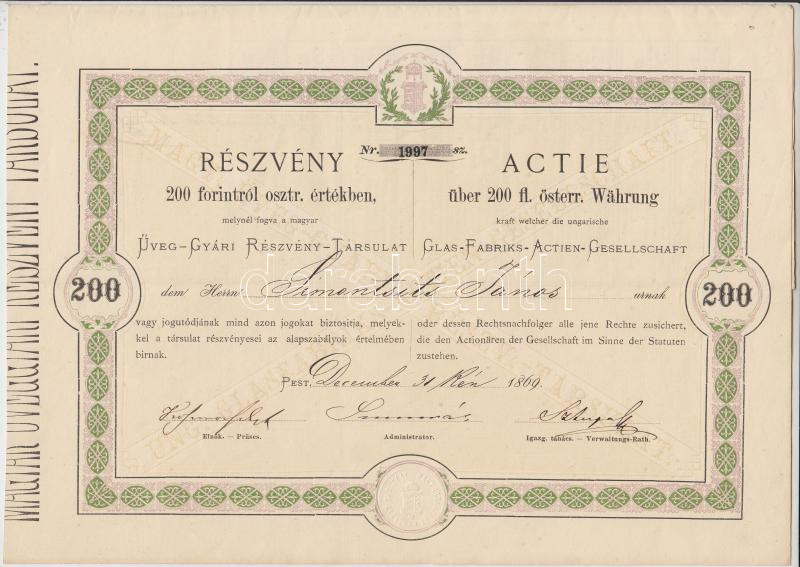 MAGYAR ÜVEGGYÁRI RÉSZVÉNY TÁRSULAT.
Nr. 1997 sz.
RÉSZVÉNY
200 forintról osztr. értékben,
melynél fogva a magyar
Üveg-Gyári Részvény-Társulat
ACTIE
über 200 fl. österr. Währung
kraft welcher die ungarische
Glas-Fabriks-Actien-Gesellschaft
200
200
dem Herrn Simontsits János urnak
vagy jogutódjának mind azon jogokat biztositja, melyek-
kel a társulat részvényesei az alapszabályok értelmében
birnak.
oder dessen Rechtsnachfolger alle jene Rechte zusichert,
die den Actionären der Gesellschaft im Sinne der Statuten
zustehen.
Pest, December 31 kén 1869.
Elnök. — Präses.
Administrator.
Igazg. tanács. — Verwaltungs-Rath.
darabanth